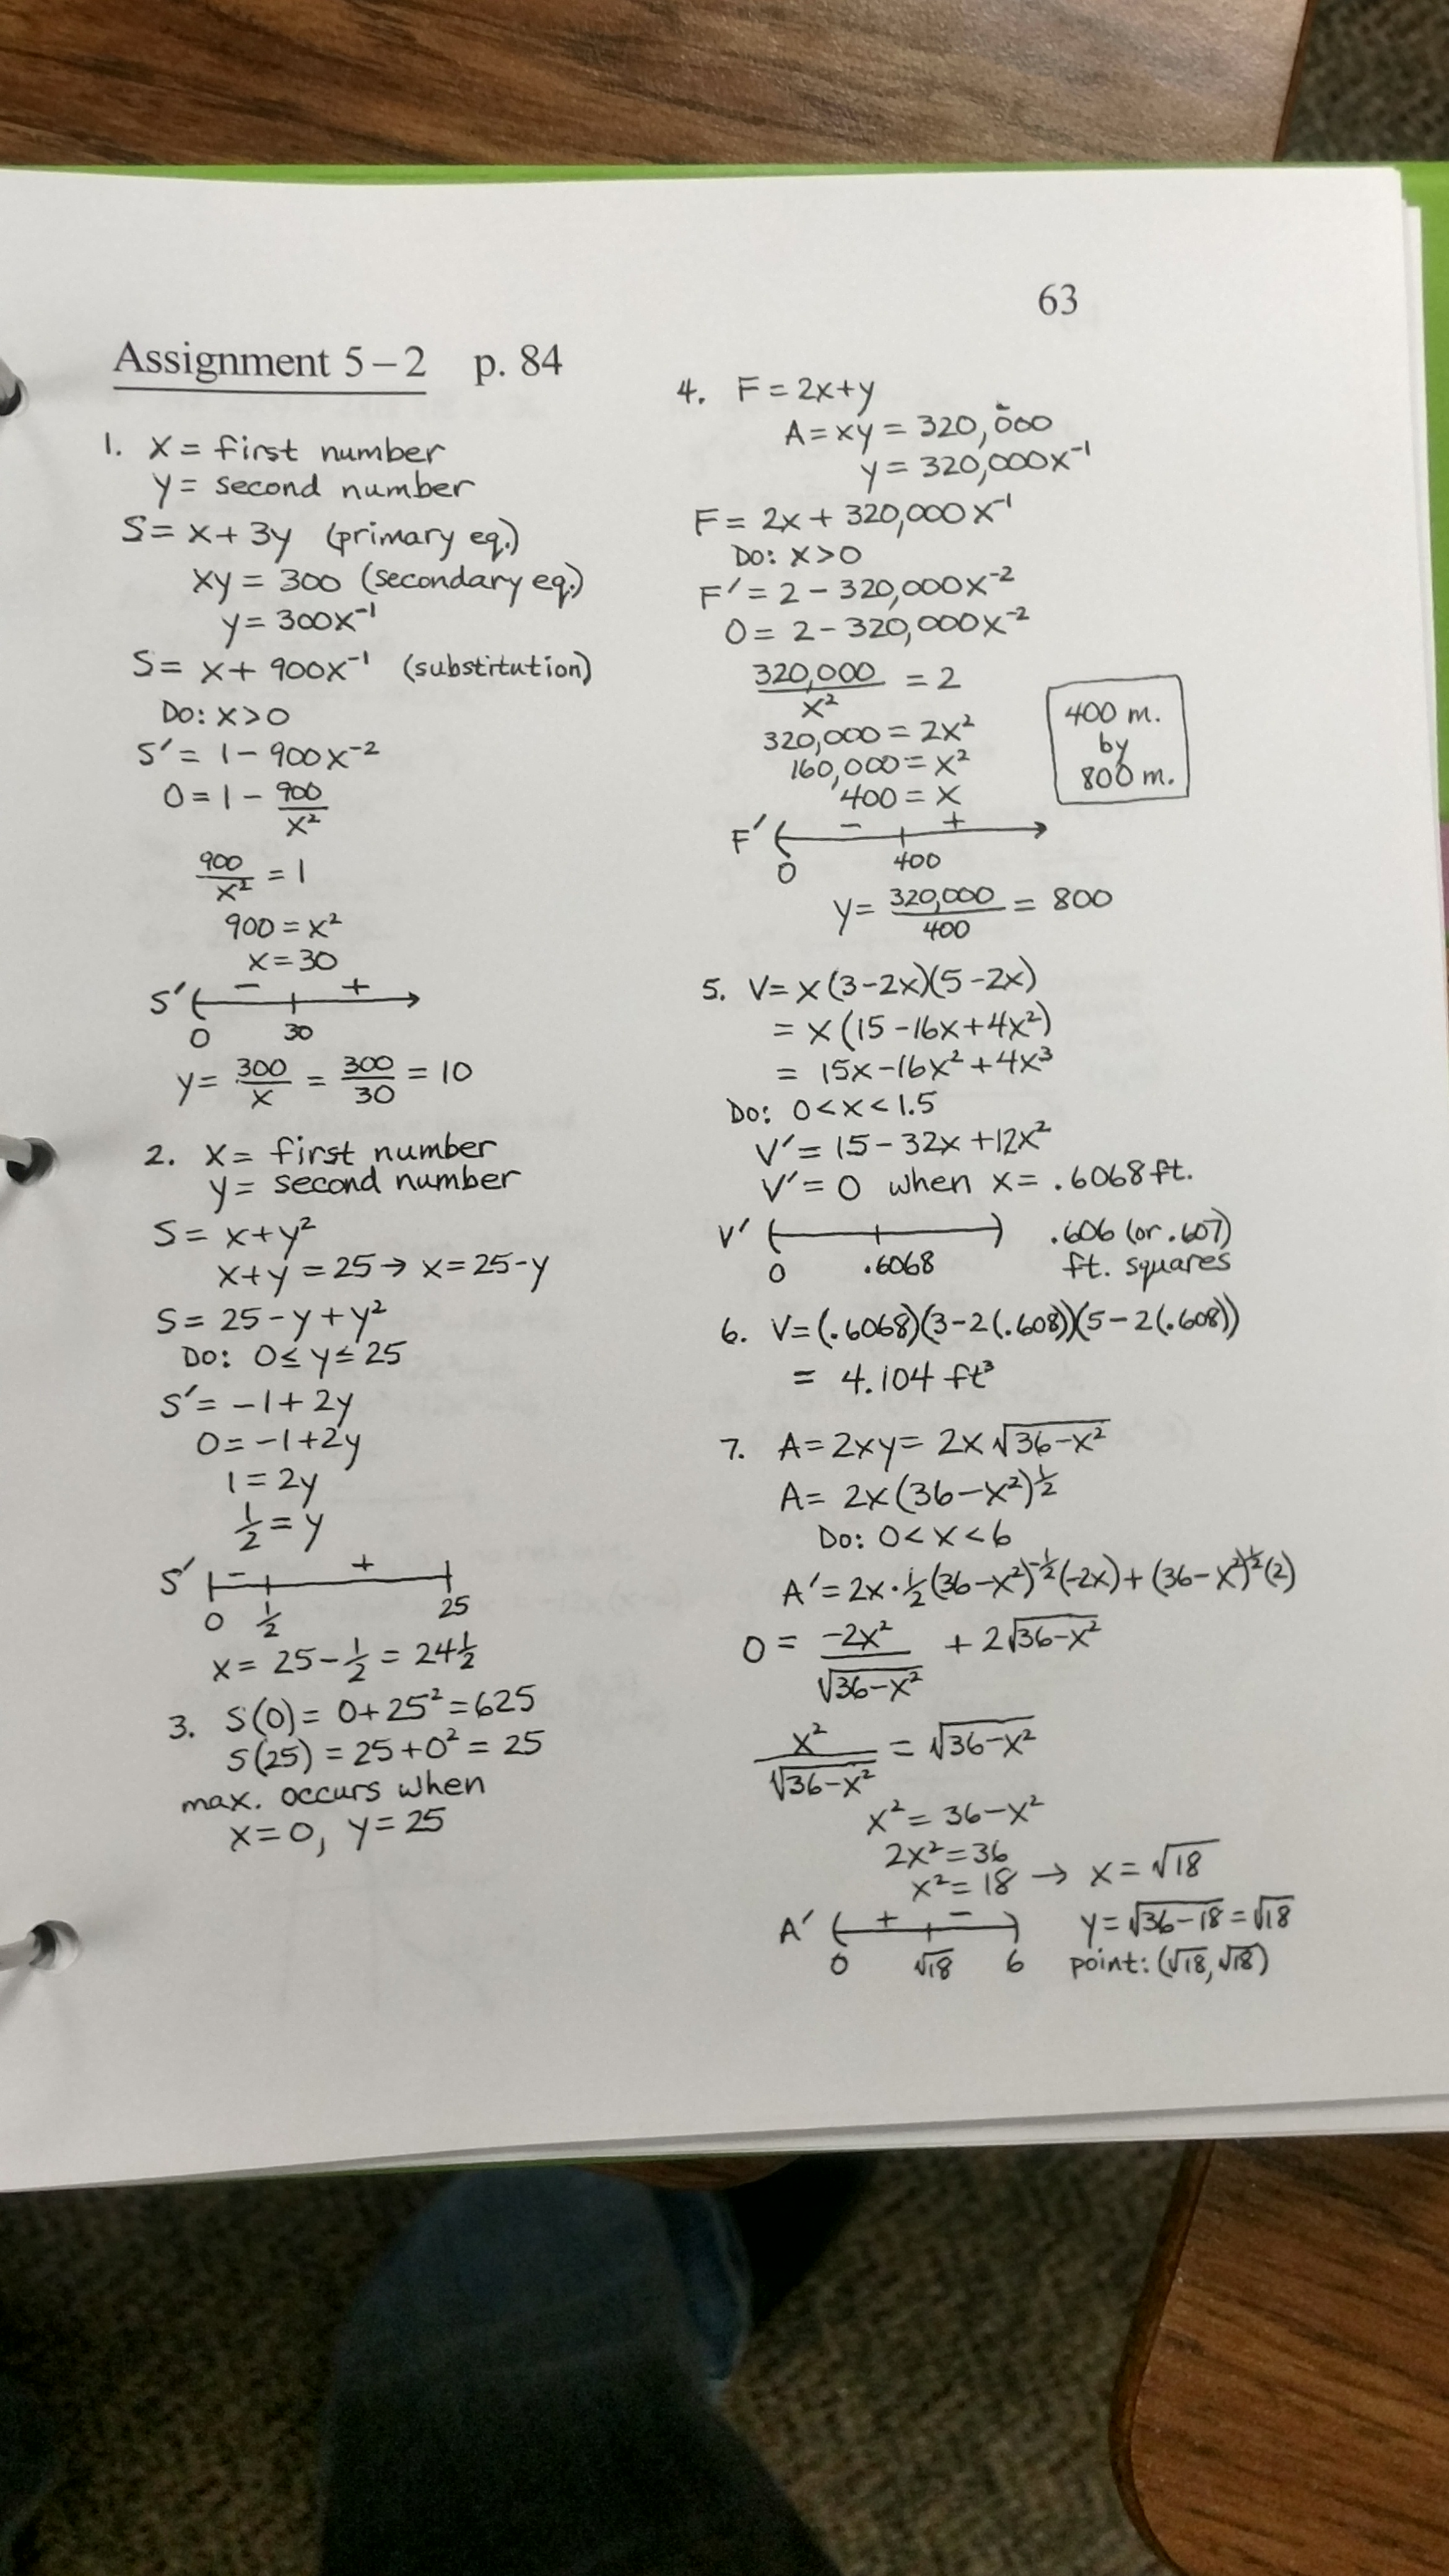 63
Assignment 5-2 p. 84
1. x = first number
y = second number
S = x + 3y (primary eq.)
xy = 300 (secondary eq.)
y = 300x⁻¹
S = x + 900x⁻¹ (substitution)
Do: x > 0
S' = 1 - 900x⁻²
0 = 1 - 900/x²
900/x² = 1
900 = x²
x = 30
S' - +
0 30
y = 300/x = 300/30 = 10
2. x = first number
y = second number
S = x + y²
x + y = 25 → x = 25 - y
S = 25 - y + y²
Do: 0 ≤ y ≤ 25
S' = -1 + 2y
0 = -1 + 2y
1 = 2y
1/2 = y
S' - +
0 1/2 25
x = 25 - 1/2 = 24 1/2
3. S(0) = 0 + 25² = 625
S(25) = 25 + 0² = 25
max. occurs when
x = 0, y = 25
4. F = 2x + y
A = xy = 320,000
y = 320,000x⁻¹
F = 2x + 320,000x⁻¹
Do: x > 0
F' = 2 - 320,000x⁻²
0 = 2 - 320,000x⁻²
320,000/x² = 2
320,000 = 2x²
160,000 = x²
400 = x
400 m.
by
800 m.
F' - +
0 400
y = 320,000/400 = 800
5. V = x(3-2x)(5-2x)
= x(15-16x+4x²)
= 15x-16x²+4x³
Do: 0 < x < 1.5
V' = 15 - 32x + 12x²
V' = 0 when x = .6068 ft.
V'
0 .6068
.606 (or .607)
ft. squares
6. V = (.6068)(3-2(.608))(5-2(.608))
= 4.104 ft³
7. A = 2xy = 2x√(36-x²)
A = 2x(36-x²)^(1/2)
Do: 0 < x < 6
A' = 2x · 1/2(36-x²)^(-1/2)(-2x) + (36-x²)^(1/2)(2)
0 = -2x²/√(36-x²) + 2√(36-x²)
x²/√(36-x²) = √(36-x²)
x² = 36-x²
2x² = 36
x² = 18 → x = √18
A' + -
0 √18 6
y = √(36-18) = √18
point: (√18, √18)